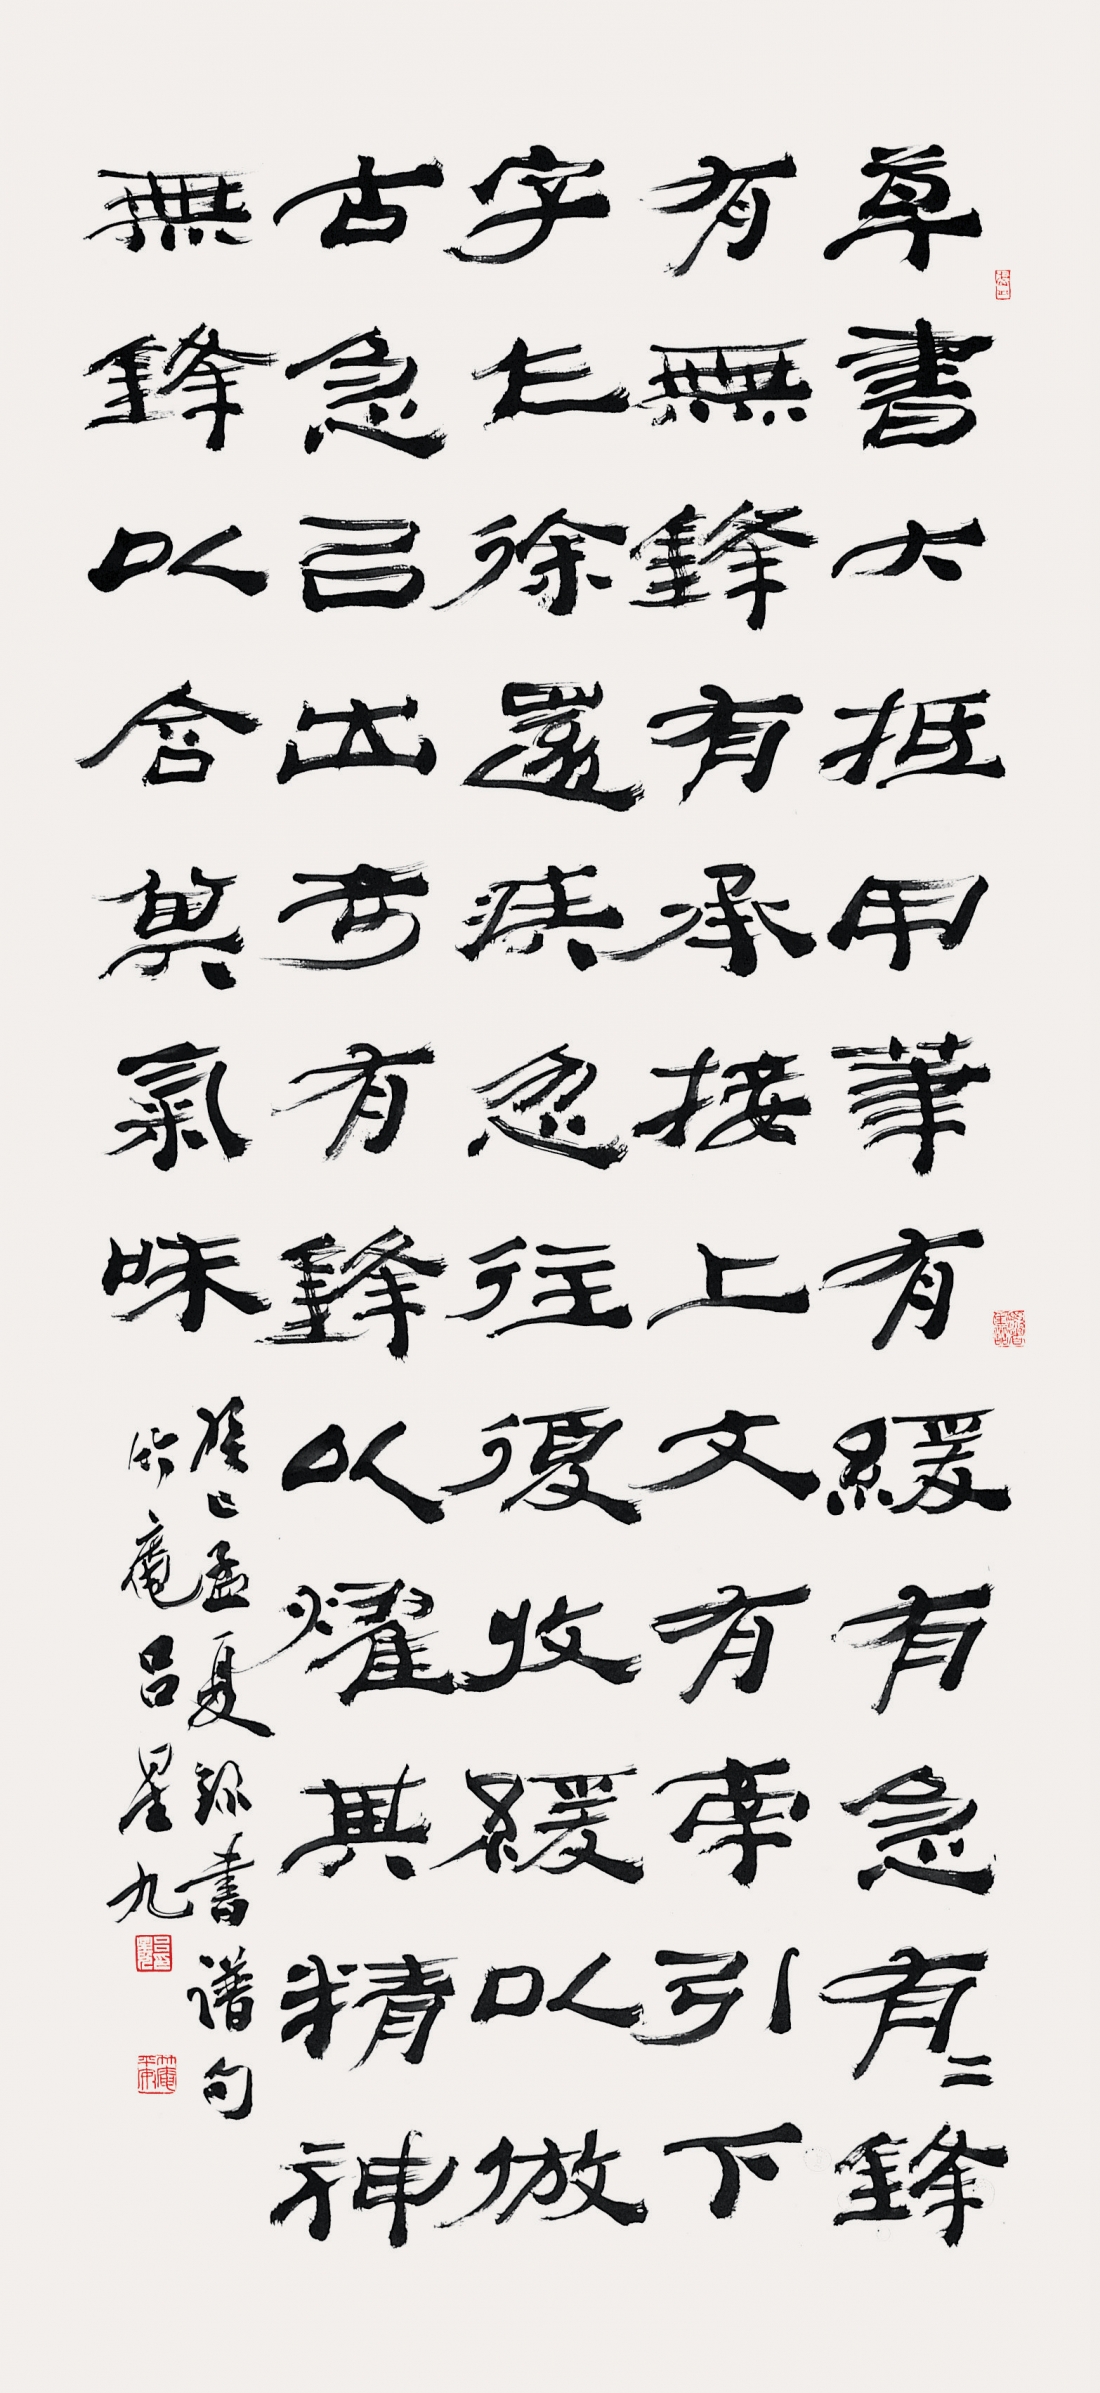 草書大抵用筆有緩有急有二鋒
有無鋒有承接上文有牽引下
字乍徐還疾忽往復收緩以倣
古急㠯出奇有鋒以耀其精神
無鋒以含其氣味
癸巳孟夏錄書譜句
竹庵呂星九